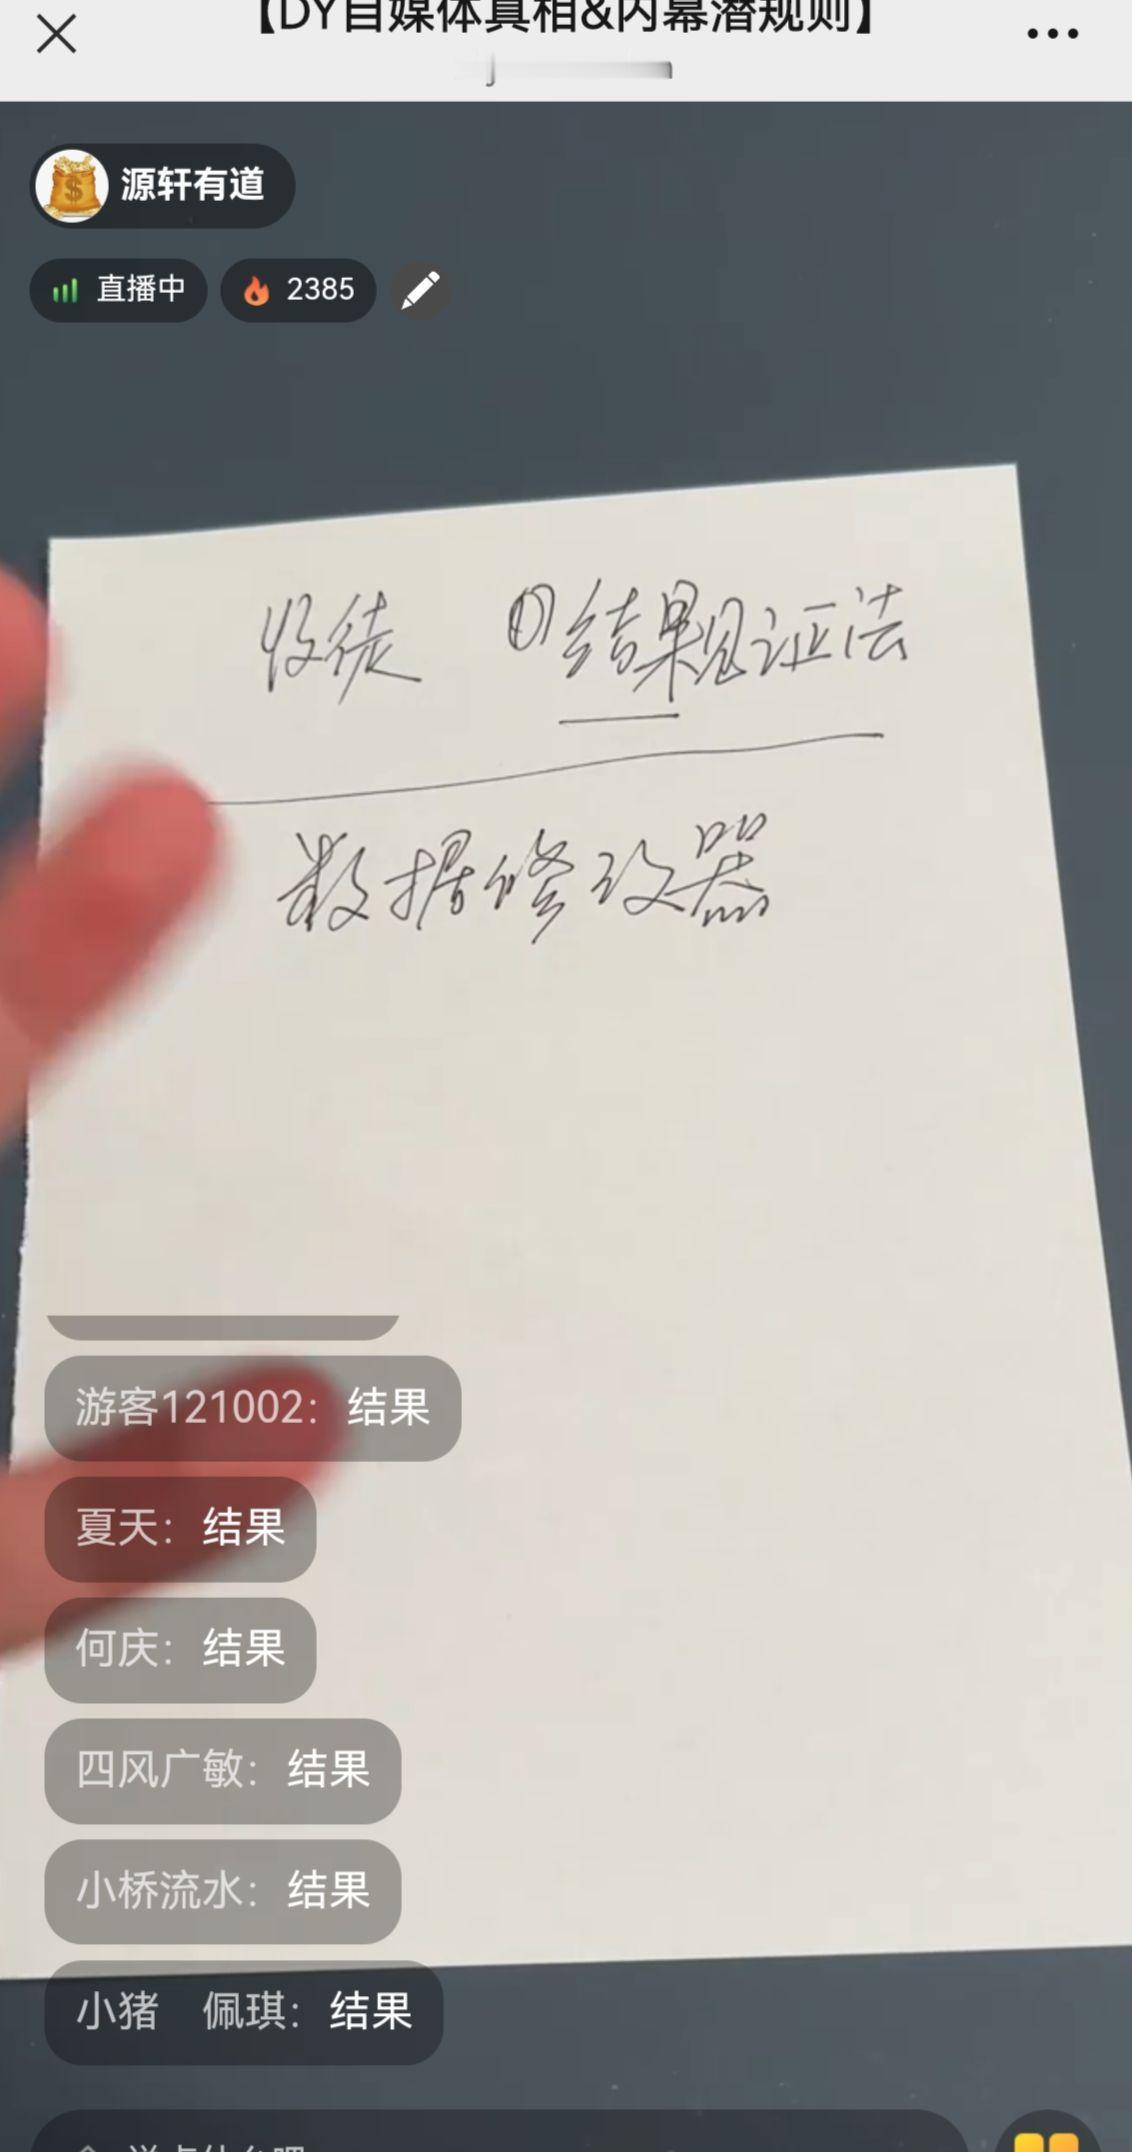 【DY自媒体真相&内幕潜规则】
源轩有道
直播中 2385
收徒 ①结果见证法
数据修改器
游客121002：结果
夏天：结果
何庆：结果
四风广敏：结果
小桥流水：结果
小猪 佩琪：结果